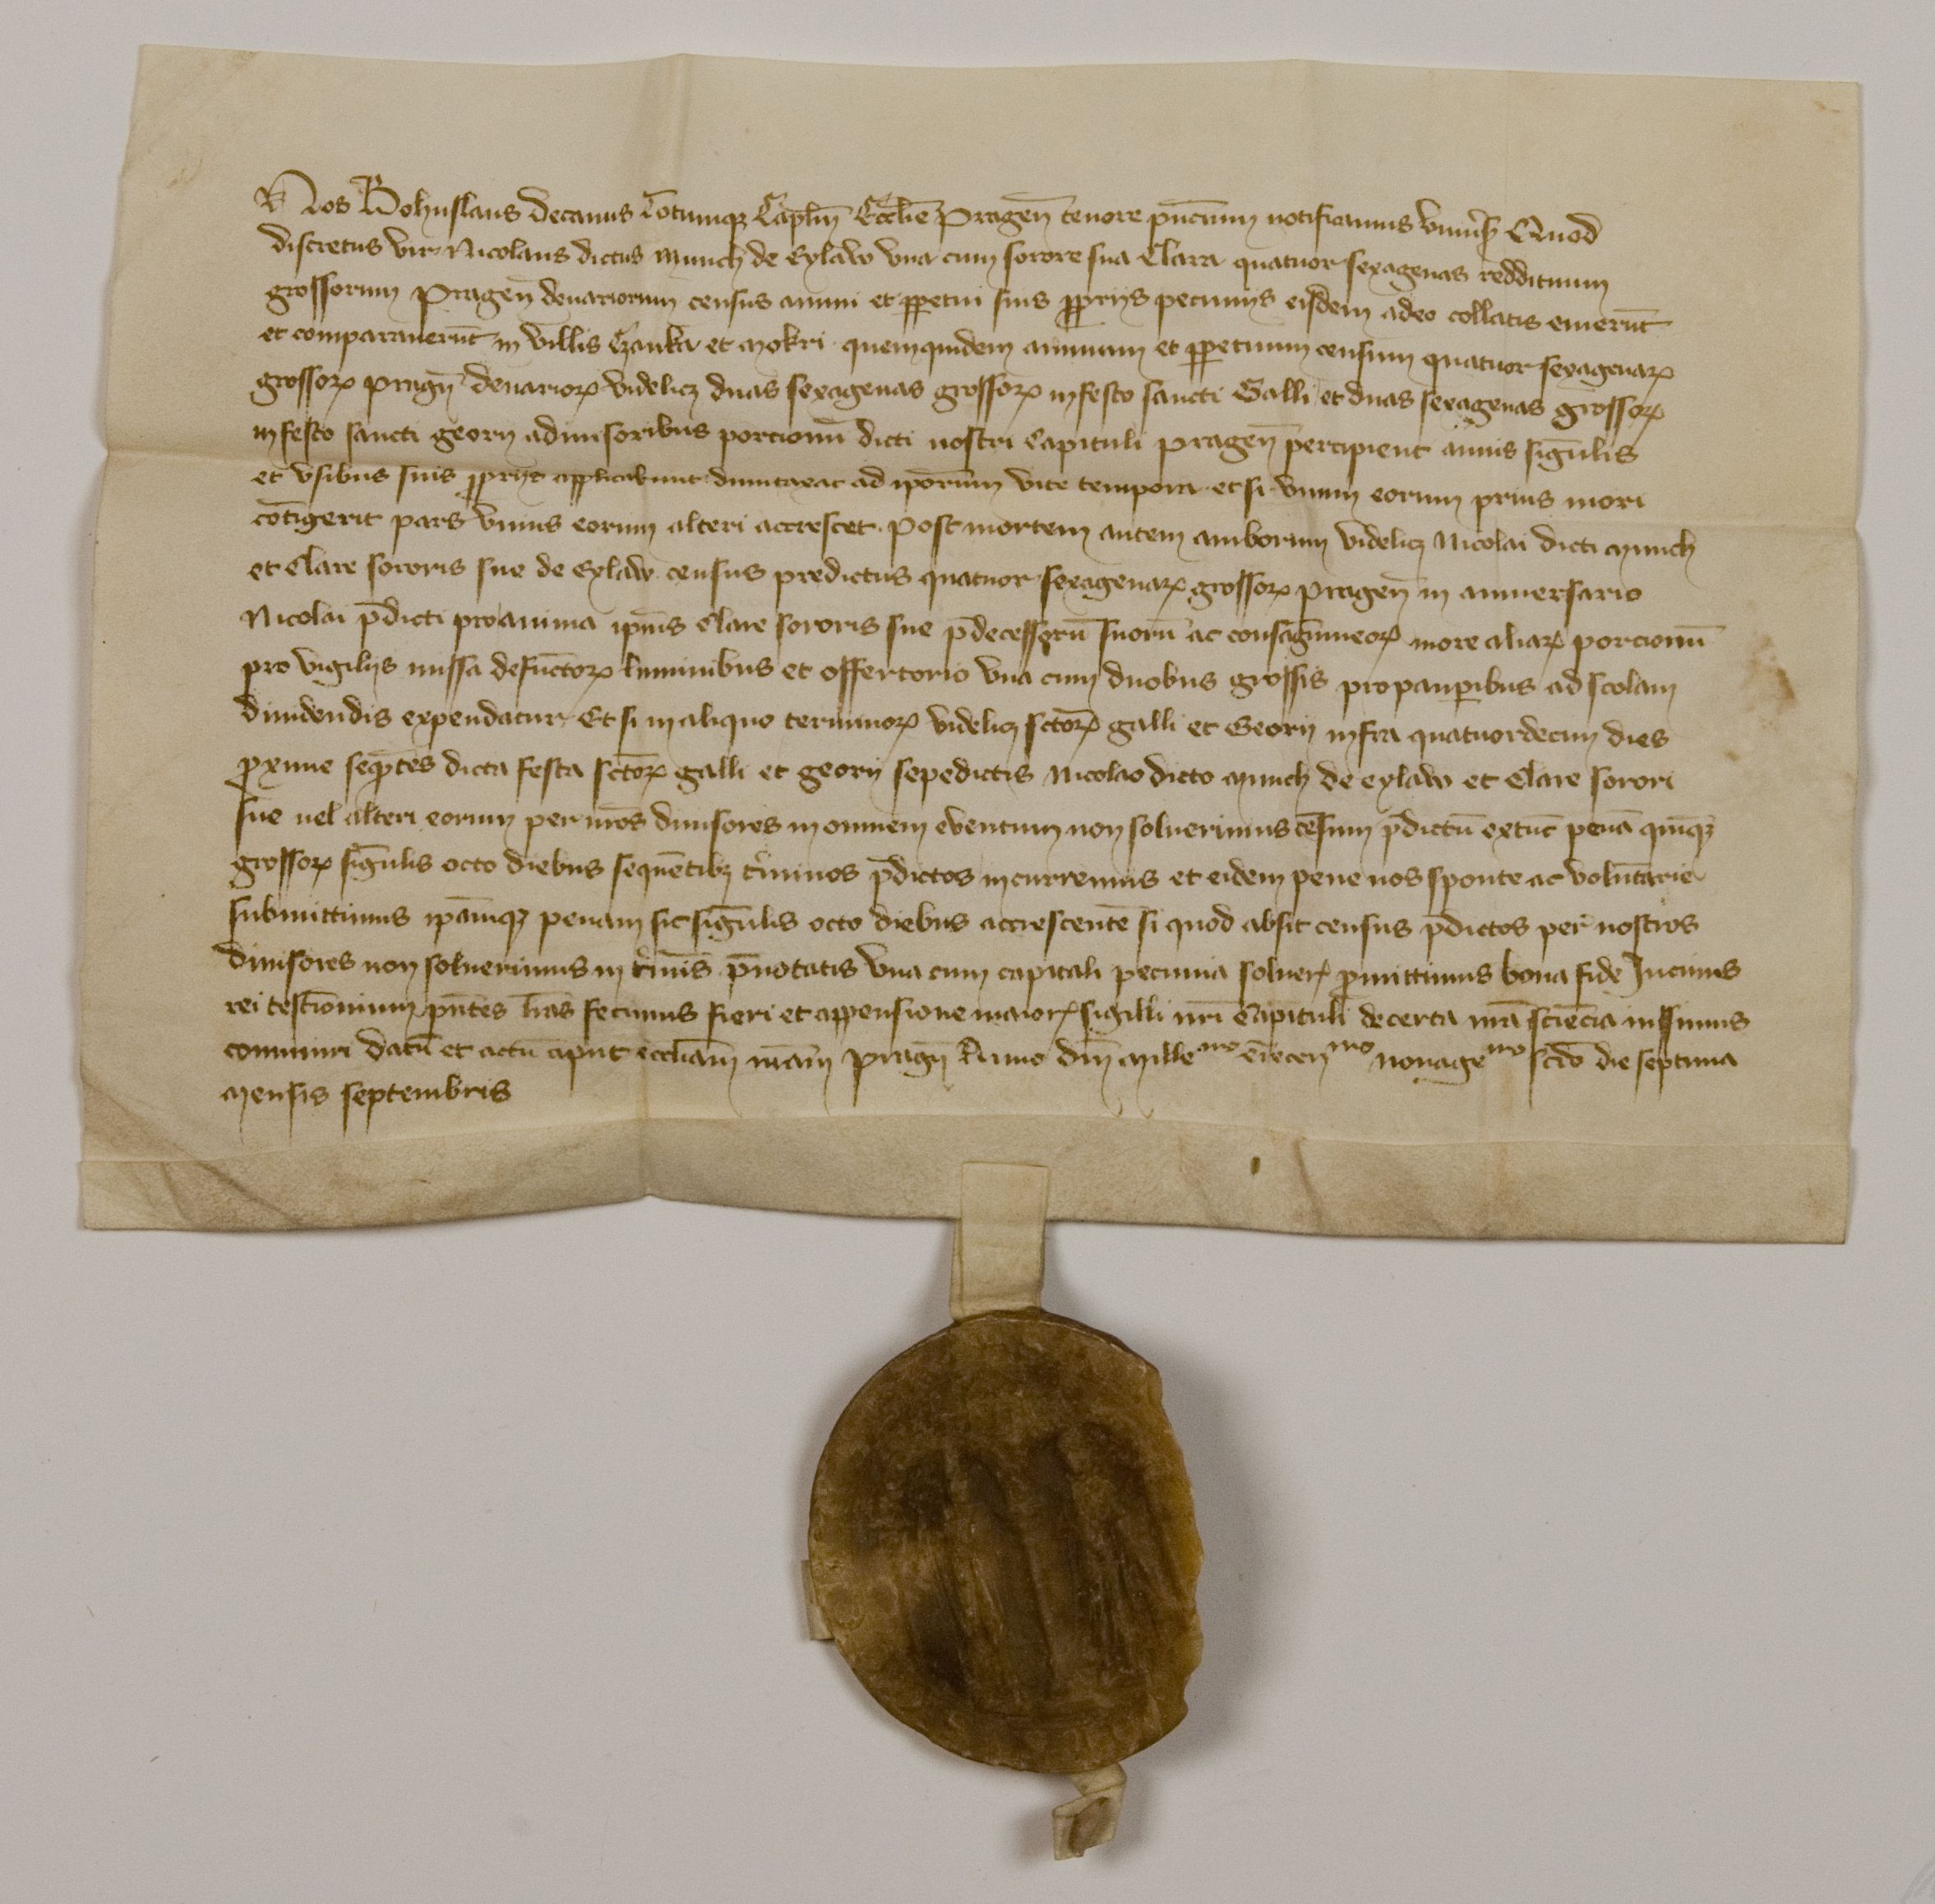 Nos Bohuslaus decanus Totumqȝ Caplm̄ Eccl̄ie Pragen̄ tenore pn̄cium notificamus vniu̾s̃ Quod
discretus vir Nicolaus dictus Munch de Eylaw vna cum sorore sua Clara quatuor sexagenas reddituum
grossorum Pragen̄ denariorum census annui et ꝑpetui suis ꝓprijs pecunijs eisdem adeo collatis emerūt
et comparauerūt in villis Czanka et Mokri quemquidem annuum et ꝑpetuum censum quatuor sexagenaꝝ
grossoꝝ pragn̄ denarioꝝ videlicȝ duas sexagenas grossoꝝ in festo sancti Galli et duas sexagenas grossoꝝ
in festo sancti georij a diuisoribus porcionū dicti nostri Capituli pragen̄ percipient annis sīgulis
et vsibus suis ꝓprijs applicabunt dumtaxat ad ip̄orum vite tempora et si vnum eorum prius mori
cōtigerit pars vnius eorum alteri accrescet Post mortem autem amborum videlicȝ Nicolai dicti Munch
et Clare sororis sue de Eylaw census predictus quatuor sexagenaꝝ grossoꝝ pragen̄ in anniuersario
Nicolai p̄dicti pro anima ip̄ius Clare sororis sue p̄decessorū suorū ac consāguineoꝝ more aliaꝝ porcionū
pro vigilijs missa defūctoꝝ luminibus et offertorio vna cum duobus grossis pro pauꝑibus ad scolam
diuidendis expendatur Et si in aliquo terminoꝝ videlicȝ sc̄toꝝ galli et Georij infra quatuordecim dies
ꝓxime seqn̄tes dicta festa sc̄toꝝ galli et georij sepedictis Nicolao dicto Munch de eylaw et Clare sorori
sue uel alteri eorum per nr̄os diuisores in omnem euentum non soluerimus cēsum p̄dictū extūc penā quīqȝ
grossoꝝ sīgulis octo diebus sequētibȝ t̾minos p̄dictos incurremus et eidem pene nos sponte ac volūtarie
submittimus ip̄amqȝ penam sic sīgulis octo diebus accrescentē si quod absit census p̄dictos per nostros
diuisores non soluerimus in t̾mīs p̄notatis vna cum capitali pecunia soluerꝭ ꝓmittimus bona fide In cuius
rei testīonium pn̄tes lr̄as fecimus fieri et appensione maiorꝭ sigilli nr̄i Capituli de certa nr̄a sciēcia iussimus
communri Datū et actū aput eccl̄iam nr̄am pragn̄ Anno dn̄i Mille^mo trecen^mo nonage^mo scd̄o die septima
Mensis septembris